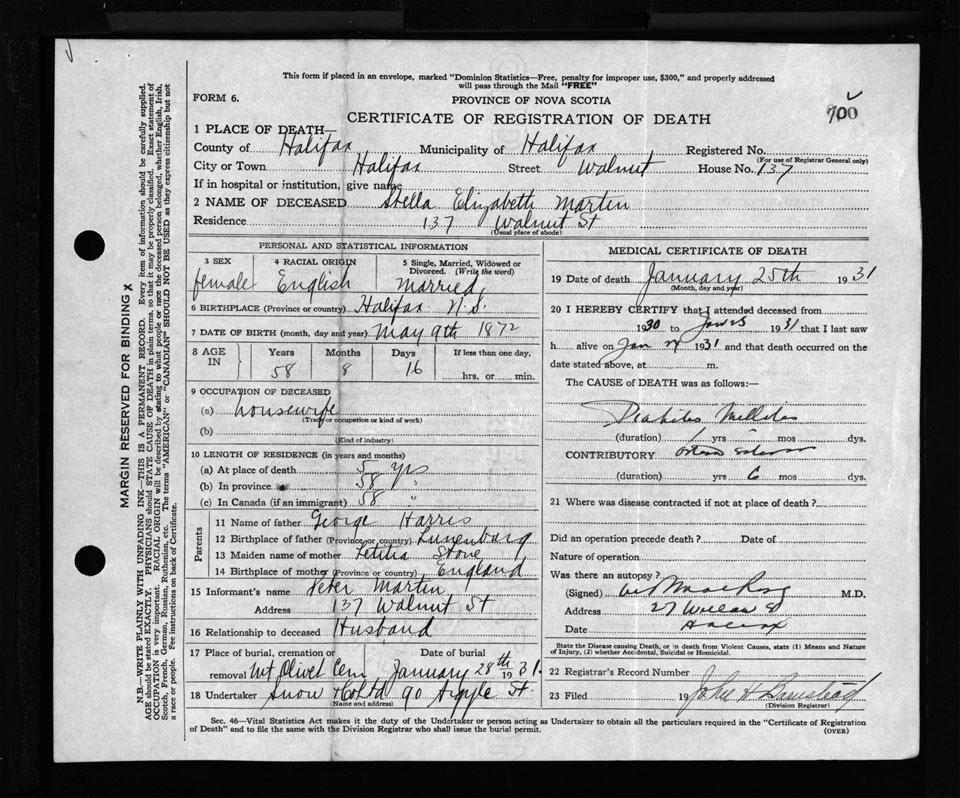 This form if placed in an envelope, marked "Dominion Statistics—Free, penalty for improper use, $300," and properly addressed
will pass through the Mail "FREE"
FORM 6.
PROVINCE OF NOVA SCOTIA
700
CERTIFICATE OF REGISTRATION OF DEATH
1 PLACE OF DEATH—
County of Halifax Municipality of Halifax Registered No.
(For use of Registrar General only)
City or Town Halifax Street Walnut House No. 137
If in hospital or institution, give name
2 NAME OF DECEASED Stella Elizabeth Martin
Residence 137 Walnut St
(Usual place of abode)
PERSONAL AND STATISTICAL INFORMATION
3 SEX 4 RACIAL ORIGIN 5 Single, Married, Widowed or
Divorced. (Write the word)
female English Married
6 BIRTHPLACE (Province or country) Halifax N.S.
7 DATE OF BIRTH (month, day and year) May 9th 1872
8 AGE IN Years Months Days If less than one day,
58 8 16 hrs. or min.
9 OCCUPATION OF DECEASED
(a) housewife
(Trade or occupation or kind of work)
(b)
(Kind of industry)
10 LENGTH OF RESIDENCE (in years and months)
(a) At place of death 5 yrs
(b) In province 58 "
(c) In Canada (if an immigrant) 58 "
Parents
11 Name of father George Harris
12 Birthplace of father (Province or country) Lunenburg
13 Maiden name of mother Letitia Stone
14 Birthplace of mother (Province or country) England
15 Informant's name Peter Martin
Address 137 Walnut St
16 Relationship to deceased Husband
17 Place of burial, cremation or Date of burial
removal Mt Olivet Cem January 28th 1931.
18 Undertaker Snow & Co Ltd 90 Argyle St.
(Name and address)
MEDICAL CERTIFICATE OF DEATH
19 Date of death January 25th 1931
(Month, day and year)
20 I HEREBY CERTIFY that I attended deceased from
1930 to 1931 that I last saw
h alive on Jan 1931 and that death occurred on the
date stated above, at m.
The CAUSE of DEATH was as follows:—
Diabetes Mellitus
(duration) 1 yrs - mos dys.
CONTRIBUTORY
(duration) yrs 6 mos dys.
21 Where was disease contracted if not at place of death?
Did an operation precede death? Date of
Nature of operation
Was there an autopsy?
(Signed) M.D.
Address 27
Date Halifax
State the Disease causing Death, or in death from Violent Causes, state (1) Means and Nature
of Injury, (2) whether Accidental, Suicidal or Homicidal.
22 Registrar's Record Number
23 Filed 19 John H
(Division Registrar)
Sec. 46—Vital Statistics Act makes it the duty of the Undertaker or person acting as Undertaker to obtain all the particulars required in the "Certificate of Registration
of Death" and to file the same with the Division Registrar who shall issue the burial permit.
(OVER)
MARGIN RESERVED FOR BINDING X
N.B.—WRITE PLAINLY WITH UNFADING INK—THIS IS A PERMANENT RECORD. Every item of information should be carefully supplied.
AGE should be stated EXACTLY. PHYSICIANS should STATE CAUSE OF DEATH in plain terms, so that it may be properly classified. Exact statement of
OCCUPATION is very important. RACIAL ORIGIN will be described by stating to what people or race the deceased person belonged, whether English, Irish,
Scotch, French, German, Russian, Ruthenian, etc. The terms "AMERICAN" or "CANADIAN" SHOULD NOT BE USED as they express citizenship but not
a race or people. See instructions on back of Certificate.